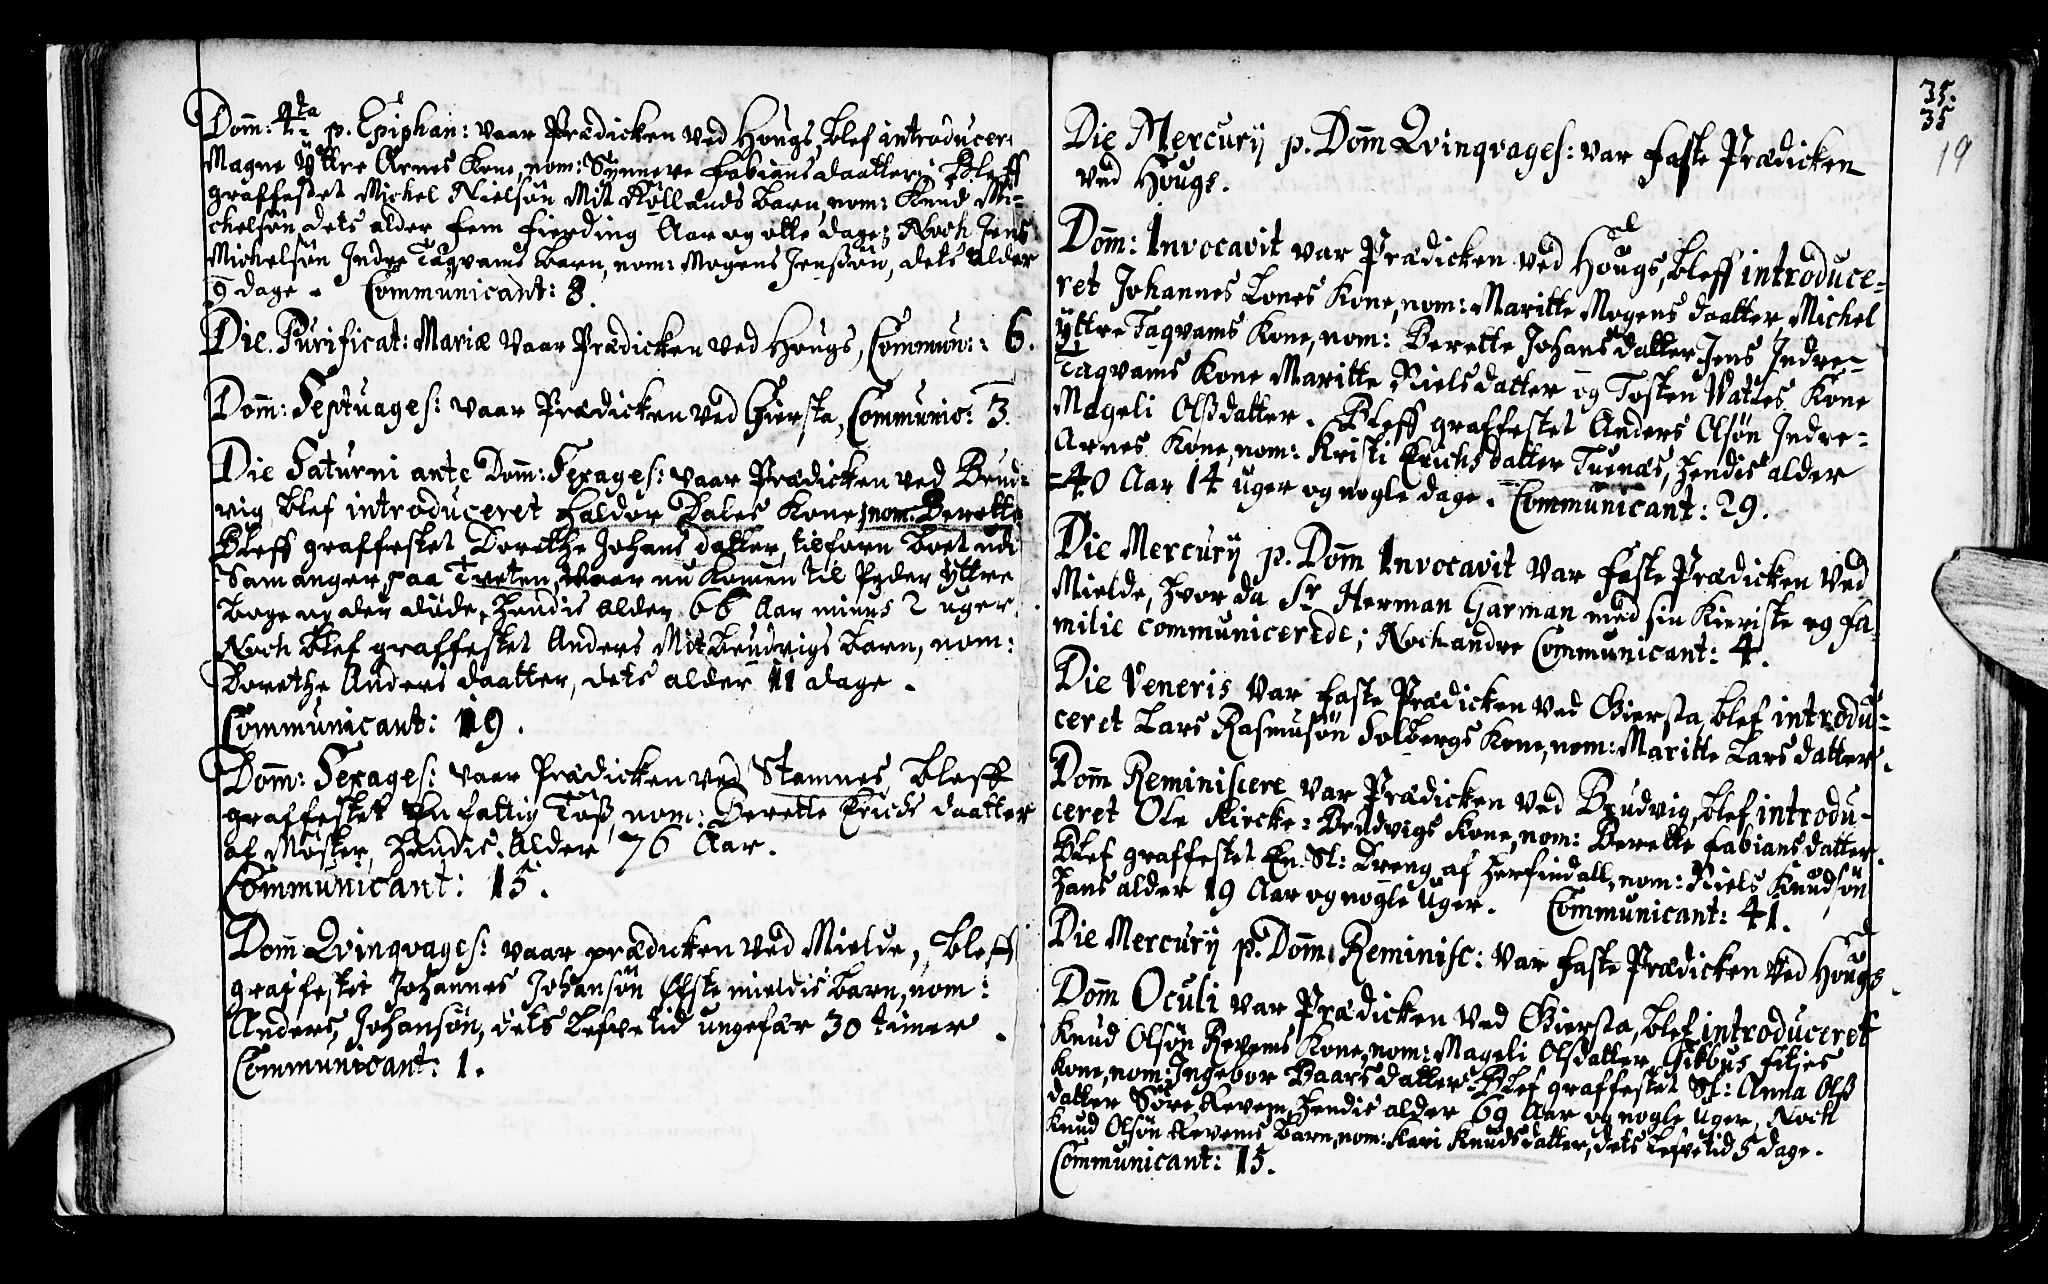 Dom̄: 4ta p. Epiphan: vaar Prædicken ved Hougs, blef introducer:
Magne Yttre Arnes Kone, nom: Synneve Fabians daatter; Bleff
graffestet Michel Nielsøn Mit Røllands barn, nom: Knud Mi-
chelsøn, dets alder fem fierding Aar og otte dage; Noch Jens
Michelsøn Indre Taqvams barn, nom: Mogens Jenssøn, dets alder
9 dage. Communicant: 8.
Die Purificat: Mariæ vaar Prædicken ved Hougs, Commun: 6.
Dom̄: Septuages: vaar Prædicken ved Giersta, Communic: 3.
Die Saturni ante Dom̄: Sexages: vaar Prædicken ved Brud-
vig blef introduceret Haldor Dales Kone, nom: Berette
Bleff graffestet Dorethe Johans datter, tilforn boet udi
Samanger paa Tveten, vaar nu kom̄en til Peder Yttre
Boge og der døde, hendis alder 66 Aar minus 2 uger.
Noch blef graffestet Anders Mit Brudvigs barn, nom:
Dorethe Anders daatter, dets alder 11 dage.
Communicant: 19.
Dom̄: Sexages: vaar Prædicken ved Stamnes, Bleff
graffestet En fattig Tøß, nom: Berette Erichs daatter
af Moster, hendis alder 76 Aar.
Communicant: 15.
Dom̄ Qvinqvages: vaar prædicken ved Mielde, Bleff
graffestet Johannes Johansøn Øfste mieldis barn, nom:
Anders Johansøn, dets lefvetid ungefær 30 timer.
Communicant: 1.
35.
35
19
Die Mercurij p. Dom̄ Qvinqvages: var faste Prædicken
ved Hougs.
Dom̄: Invocavit var Prædicken ved Hougs, bleff introduce-
ret Johannes Lones Kone, nom: Maritte Mogens daatter, Michel
Yttre Taqvams Kone, nom: Berette Johans datter, Jens Indre-
Taqvams Kone Maritte Niels datter og Tosten Vatnes Kone
Mageli Olsdatter. Bleff graffestet Anders Olsøn Indre-
Arnes Kone, nom: Kristi Erichs datter Tuenæs, hendis alder
40 Aar 14 uger og nogle dage. Communicant: 29.
Die Mercurij p. Dom̄ Invocavit var faste Prædicken ved
Mielde, hvor da Sr Herman Garman med sin Kieriste og fa-
milie communicerede; Noch andre Communicant: 4.
Die Veneris var faste Prædicken ved Giersta, blef introdu-
ceret Lars Rasmusøn Solbergs Kone, nom: Maritte Lars datter.
Dom̄ Reminiscere var Prædicken ved Brudvig, blef introdu-
ceret Ole Kircke-Brudvigs Kone, nom: Berette Fabians datter.
Blef graffestet En Sl: Dreng af Herfindall, nom: Niels Knudsøn
hans alder 19 Aar og nogle Uger. Communicant: 41.
Die Mercurij p. Dom̄: Reminisc: var faste Prædicken ved Hougs.
Dom̄ Oculi var Prædicken ved Giersta, blef introduceret
Knud Olsøn Revems Kone, nom: Mageli Olsdatter, Gibbus Filjes
Kone, nom: Ingebor Baars datter. Blef graffestet Sl: Anna Olß
datter Søre Revem, hendis alder 69 Aar og nogle Uger, Noch
Knud Olsøn Revems barn, nom: Kari Knuds datter, dets lefvetid 5 dage.
Communicant: 15.